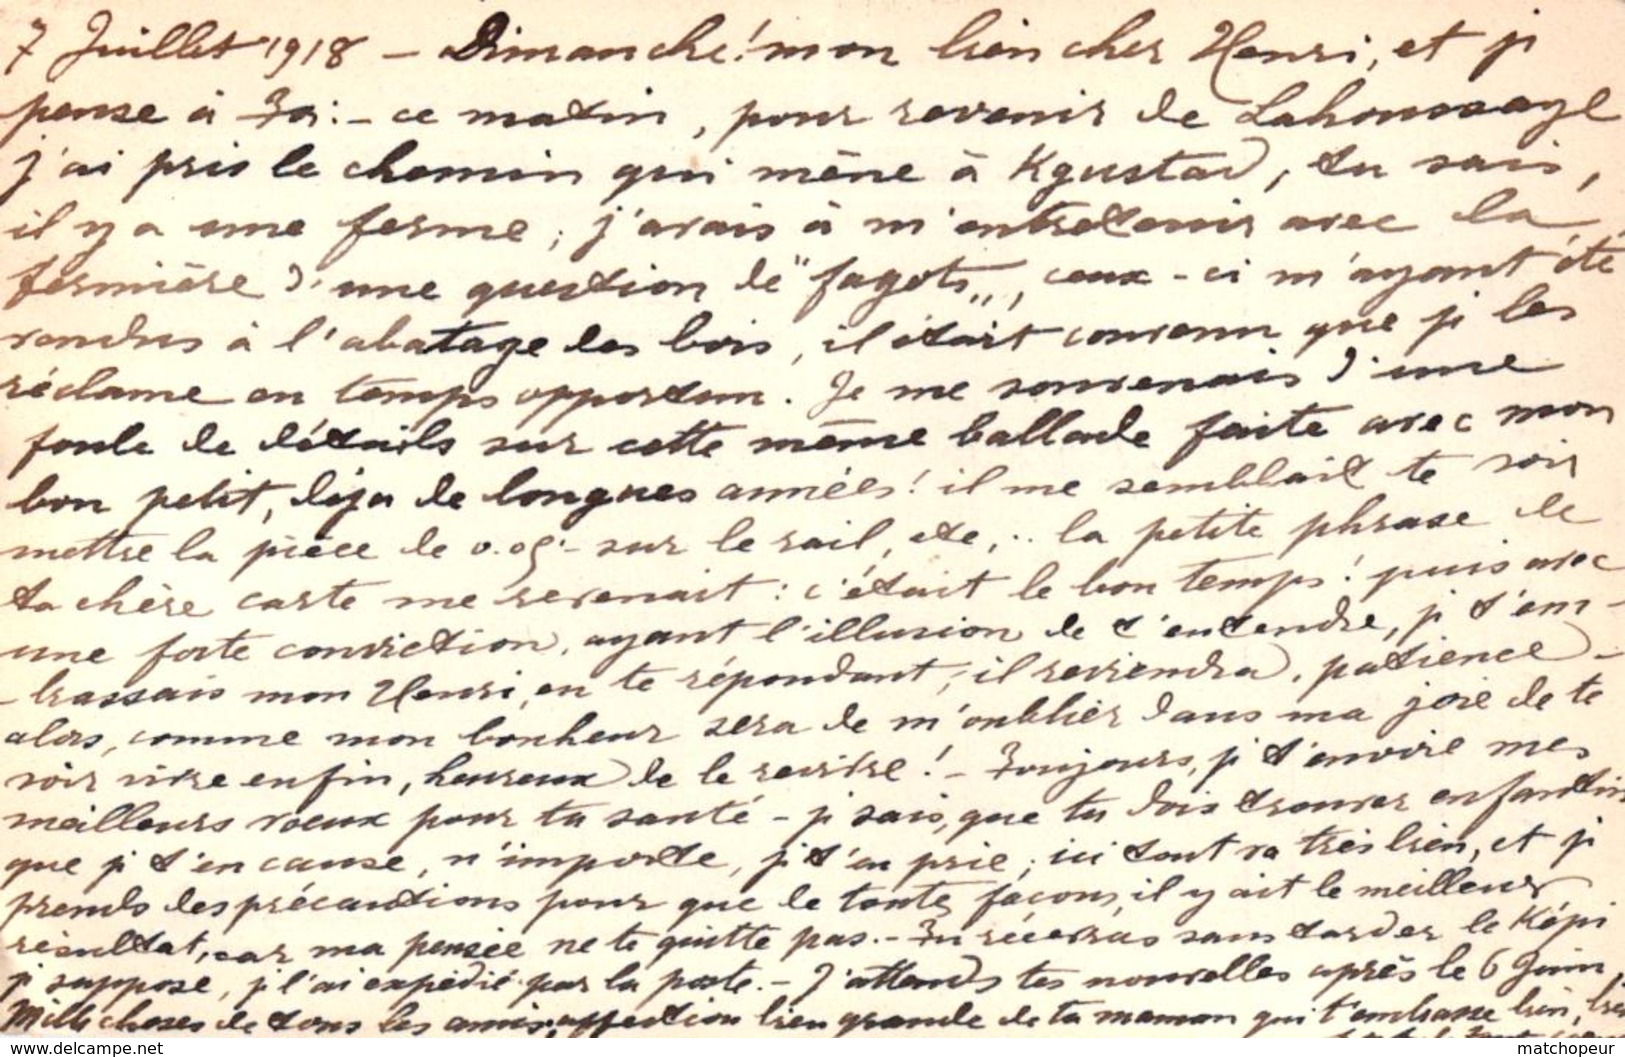 7 Juillet 1918 — Dimanche! mon bien cher Henri, et je
pense à Toi: — ce matin, pour revenir de Lahoussaye
j'ai pris le chemin qui mène à Kgustad, tu sais,
il y a une ferme; j'avais à m'entretenir avec la
fermière d'une question de "fagots", ceux-ci m'ayant été
vendus à l'abatage des bois, il était convenu que je les
réclame en temps opportun. Je me souvenais d'une
foule de détails sur cette même ballade faite avec mon
bon petit, déja de longues années! il me semblait te voir
mettre la pièce de 0.05 — sur le rail, etc, .. la petite phrase de
ta chère carte me revenait: c'était le bon temps! puis avec
une forte conviction, ayant l'illusion de t'entendre, je t'em-
-brassais mon Henri, en te répondant, il reviendra, patience —
alors, comme mon bonheur sera de m'oublier dans ma joie de te
voir vivre enfin, heureux de le revivre! — Toujours, je t'envoie mes
meilleurs vœux pour ta santé — je sais, que tu dois trouver enfantin
que je t'en cause, n'importe, je t'en prie, ici tout va très bien, et je
prends des précautions pour que de toutes façons, il y ait le meilleur
résultat, car ma pensée ne te quitte pas. — Tu recevras sans tarder le Képi
je suppose, je l'ai expédié par la poste. — J'attends tes nouvelles après le 6 Juin,
Mille choses de tous les amis, affection bien grande de ta maman qui t'embrasse bien, bien
matchopeur
www.delcampe.net